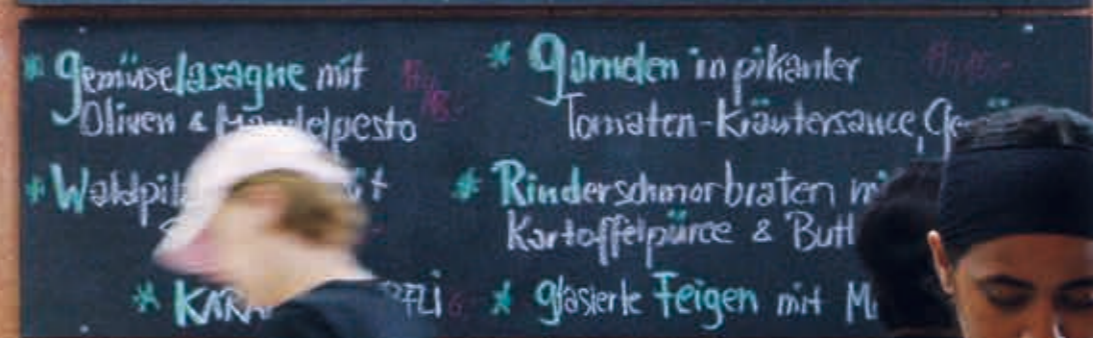 * Gemüselasagne mit
Oliven & Mandelpesto
* Waldpil
* KARA FELI
* Garnelen in pikanter
Tomaten-Kräutersauce, Ge
* Rinderschmorbraten mi
Kartoffelpüree & Butt
* glasierte Feigen mit M